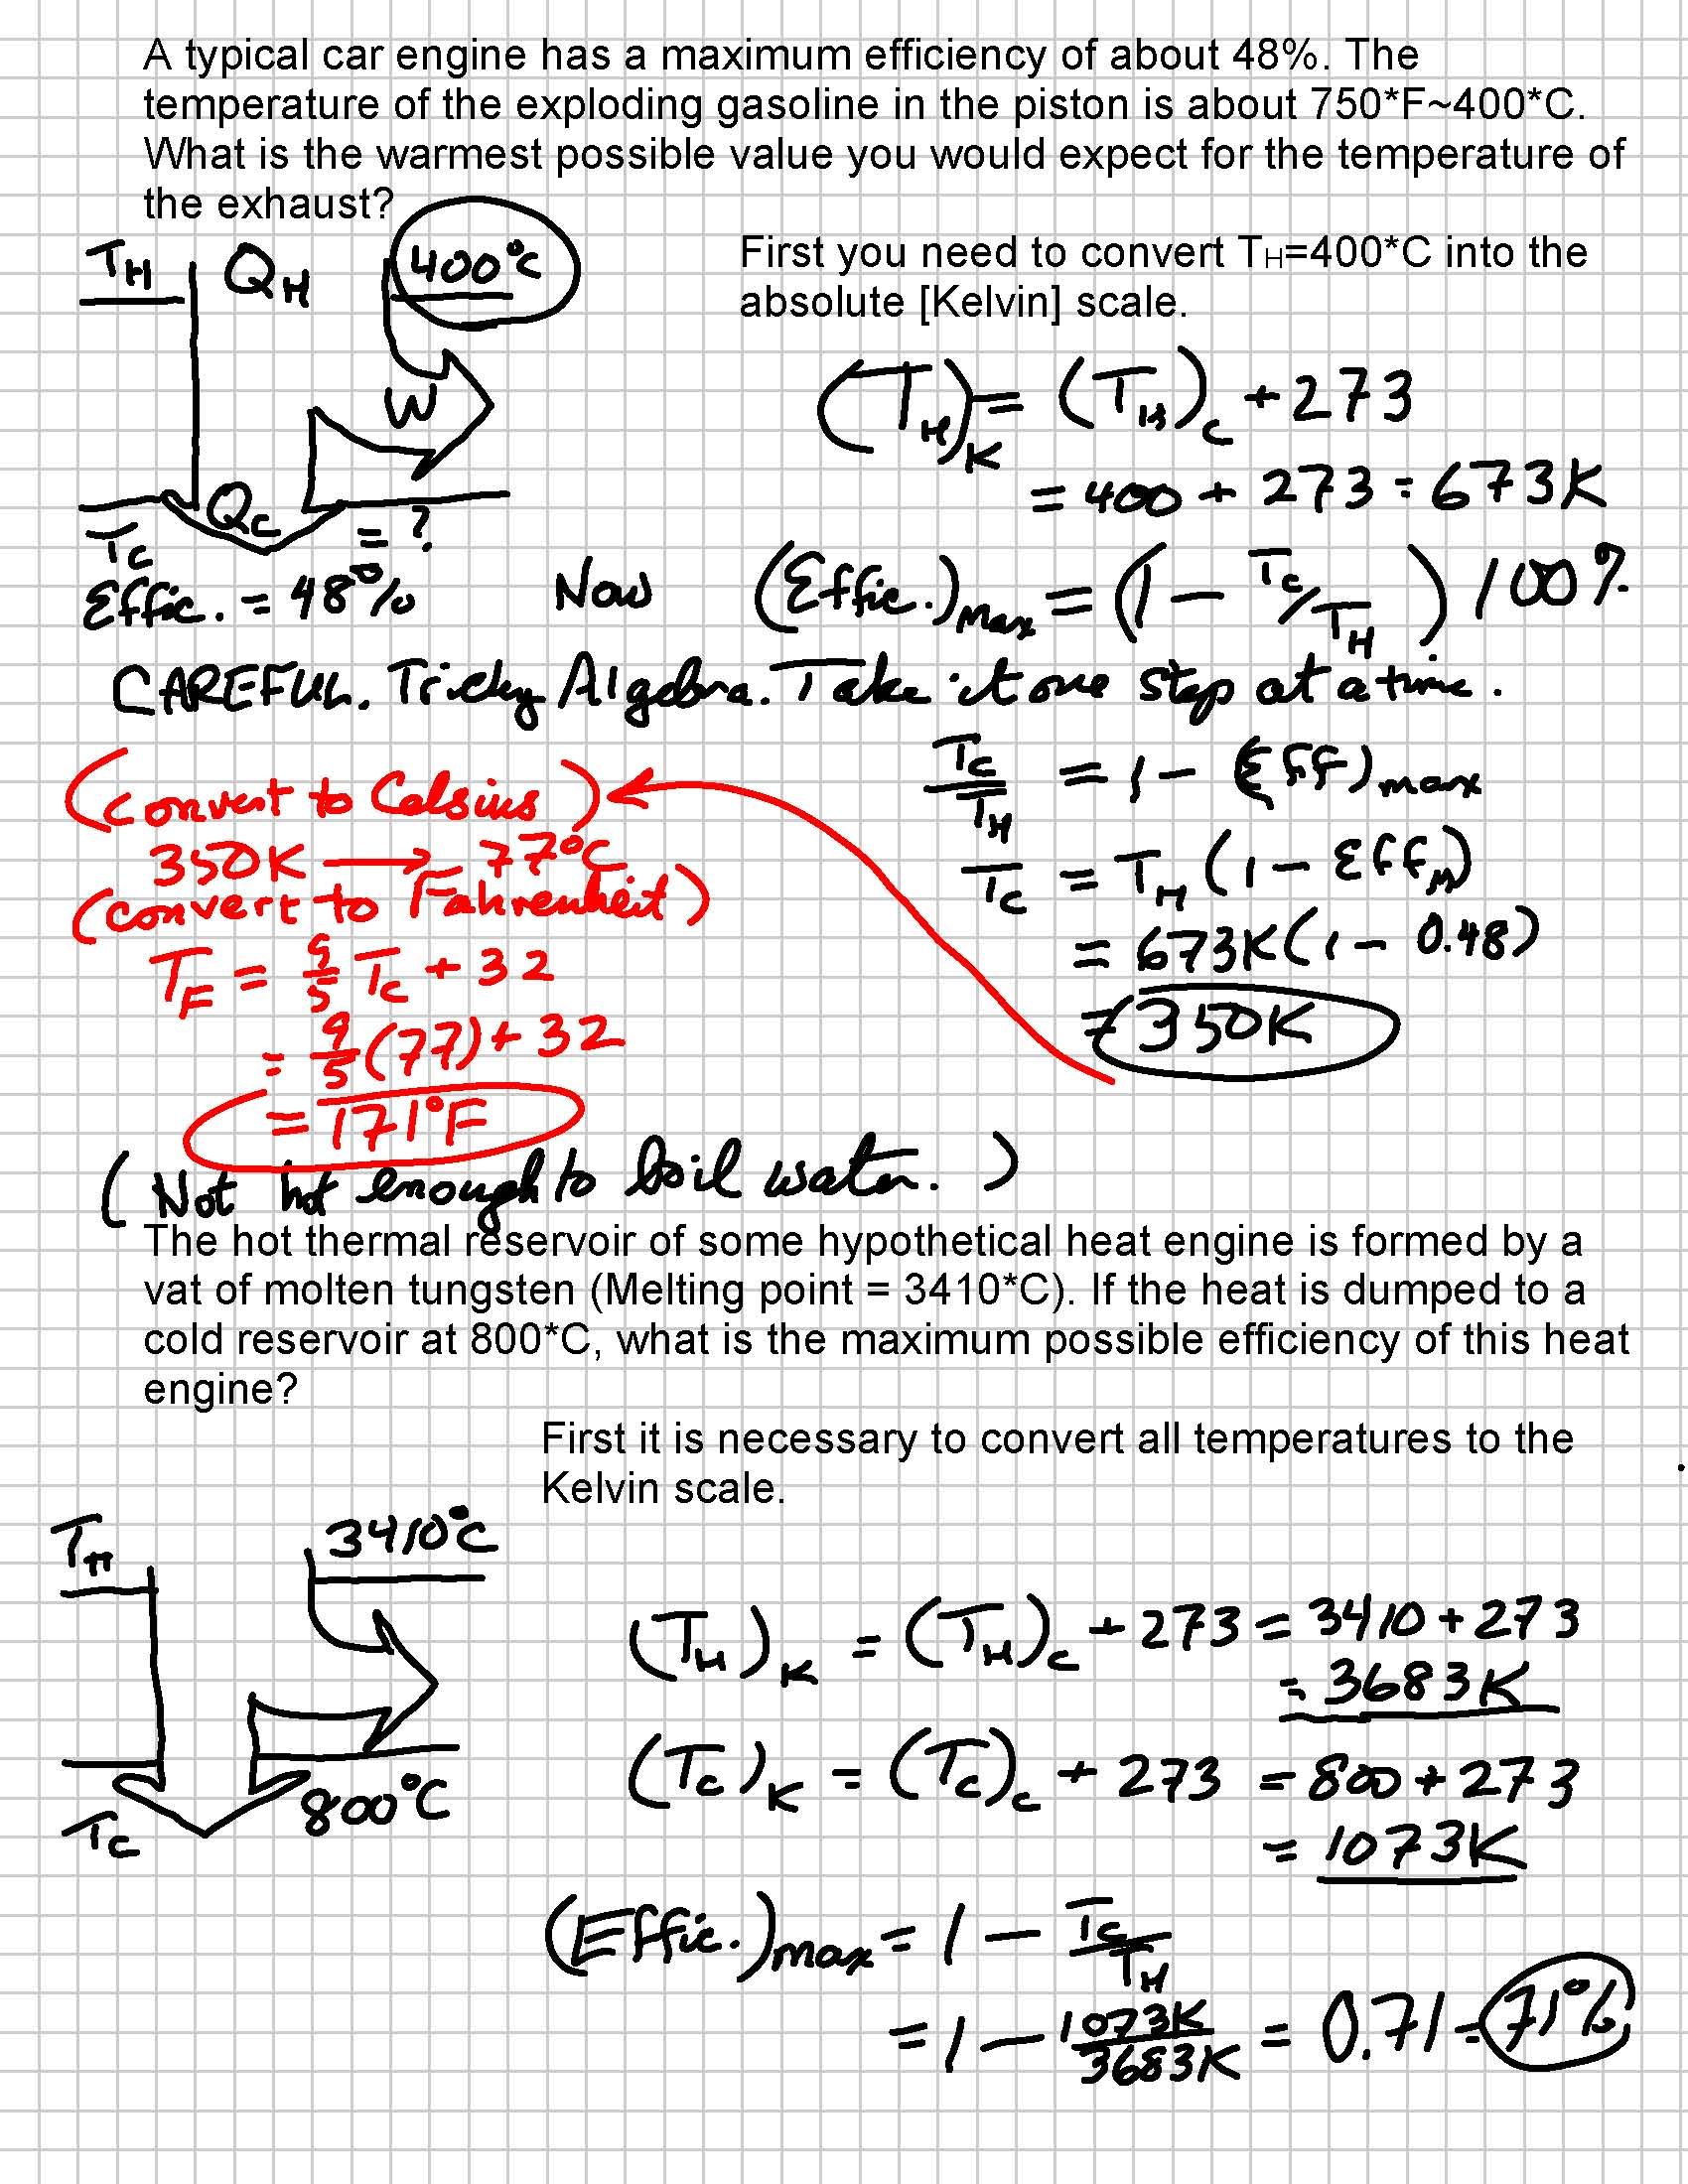 A typical car engine has a maximum efficiency of about 48%. The
temperature of the exploding gasoline in the piston is about 750*F~400*C.
What is the warmest possible value you would expect for the temperature of
the exhaust?
T_H Q_H 400°C
First you need to convert T_H=400*C into the
absolute [Kelvin] scale.
W
(T_H)_K = (T_H)_C + 273
= 400 + 273 = 673K
Q_C
T_C = ?
Effic. = 48%
Now (Effic.)_Max = (1 - T_C/T_H) 100%
CAREFUL. Tricky Algebra. Take it one step at a time.
T_C/T_H = 1 - (Eff)_max
T_C = T_H (1 - Eff_M)
= 673K (1 - 0.48)
= 350K
(Convert to Celsius)
350K → 77°C
(convert to Fahrenheit)
T_F = 9/5 T_C + 32
= 9/5 (77) + 32
= 171°F
(Not hot enough to boil water.)
The hot thermal reservoir of some hypothetical heat engine is formed by a
vat of molten tungsten (Melting point = 3410*C). If the heat is dumped to a
cold reservoir at 800*C, what is the maximum possible efficiency of this heat
engine?
First it is necessary to convert all temperatures to the
Kelvin scale.
T_H 3410°C
T_C 800°C
(T_H)_K = (T_H)_C + 273 = 3410 + 273
= 3683K
(T_C)_K = (T_C)_C + 273 = 800 + 273
= 1073K
(Effic.)_max = 1 - T_C/T_H
= 1 - 1073K/3683K = 0.71 = 71%